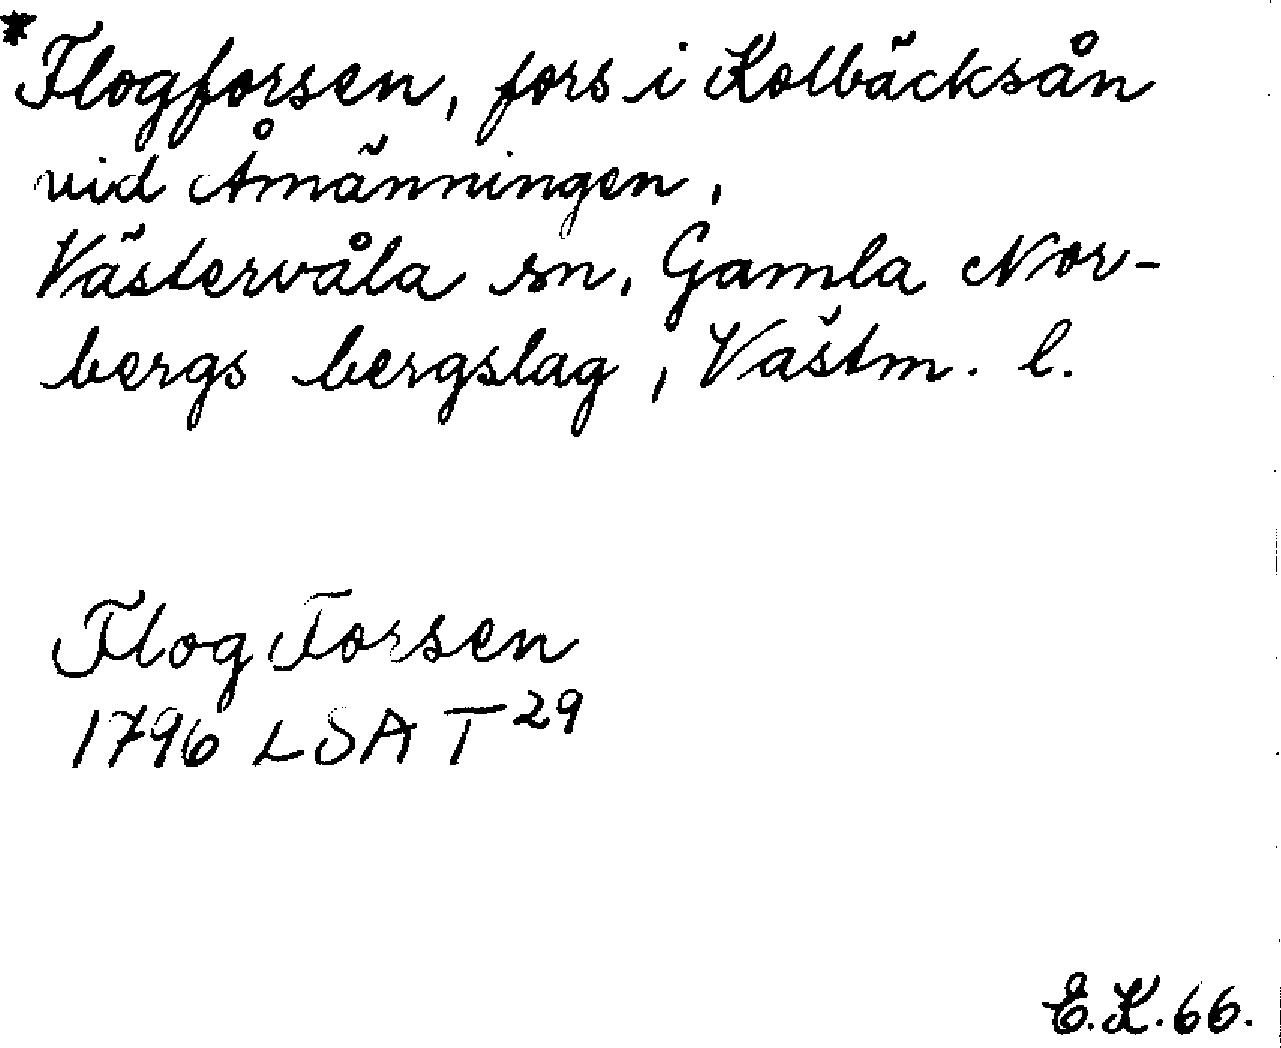 *Flogforsen, fors i Kolbäcksån
vid Åmänningen,
Västervåla sn, Gamla Nor-
bergs bergslag, Västm. l.
Flog Forsen
1796 LSA T²⁹
E.K.66.